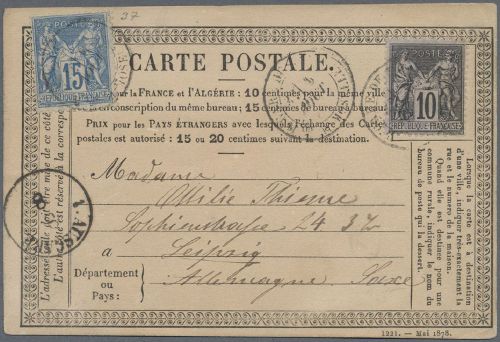 27
POSTE
15
REPUBLIQUE FRANÇAISE
POSTE
10
REPUBLIQUE FRANÇAISE
CARTE POSTALE.
pour la FRANCE et l'ALGÉRIE: 10 centimes pour la même ville
circonscription du même bureau; 15 centimes de bureau à bureau.
PRIX pour les PAYS ÉTRANGERS avec lesquels l'échange des Cartes
postales est autorisé: 15 ou 20 centimes suivant la destination.
Madame
Ottilie Thieme
Sophienstrasse 24 3 Tr
à Leipzig
Département
ou
Pays:
Allemagne Saxe
L'adresse
mise de ce côté
L'authe est réservé à la correspo
Lorsque la carte est à destination
d'une ville, indiquer très-exactement la
rue et le numéro de la maison.
Quand elle est destinée pour une
commune rurale, indiquer le nom du
bureau de poste qui la dessert.
1221. — Mai 1878.